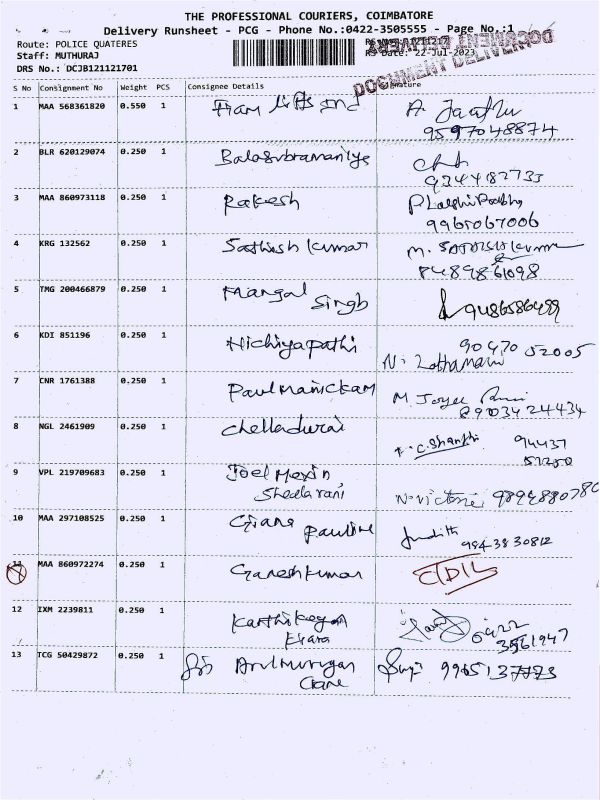 THE PROFESSIONAL COURIERS, COIMBATORE
Delivery Runsheet - PCG - Phone No.:0422-3505555 - Page No.:1
Route: POLICE QUATERES
Staff: MUTHURAJ
RS Date: 22-Jul-2023
DRS No.: DCJB121121701
DOCUMENT
S No Consignment No Weight PCS Consignee Details
1 MAA 568361820 0.550 1
9597048874
2 BLR 620129074 0.250 1 Balasubramaniye
9344182733
3 MAA 860973118 0.250 1 Rakesh
9965067006
4 KRG 132562 0.250 1 Sathish Kumar M. SATHISH KUMAR
8489861098
5 TMG 200466879 0.250 1 Mangal Singh 9486586499
6 KDI 851196 0.250 1 Hichiyapathi 90470 52005
7 CNR 1761388 0.250 1 Paulmanickam M. Joyce
8903424434
8 NGL 2461909 0.250 1 Chelladurai C. Shanthi 94437
9 VPL 219709683 0.250 1 Joel Merin
Sheela rani N. Victoria
10 MAA 297108525 0.250 1 Pauline Judith
98438 30812
11 MAA 860972274 0.250 1 Ganesh Kumar
12 IXM 2239811 0.250 1 Karthikeyan
0422
3561947
13 TCG 50429872 0.250 1 Arul Murugan